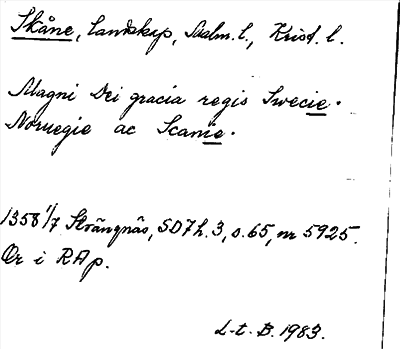 Skåne, landskap, Malm. l., Krist. l.
Magni Dei gracia regis Swecie.
Noruegie ac Scanie.
1358 1/7 Strängnäs, SD7h.3, s.65, nr 5925.
Or i RAp.
L-t. B. 1983.